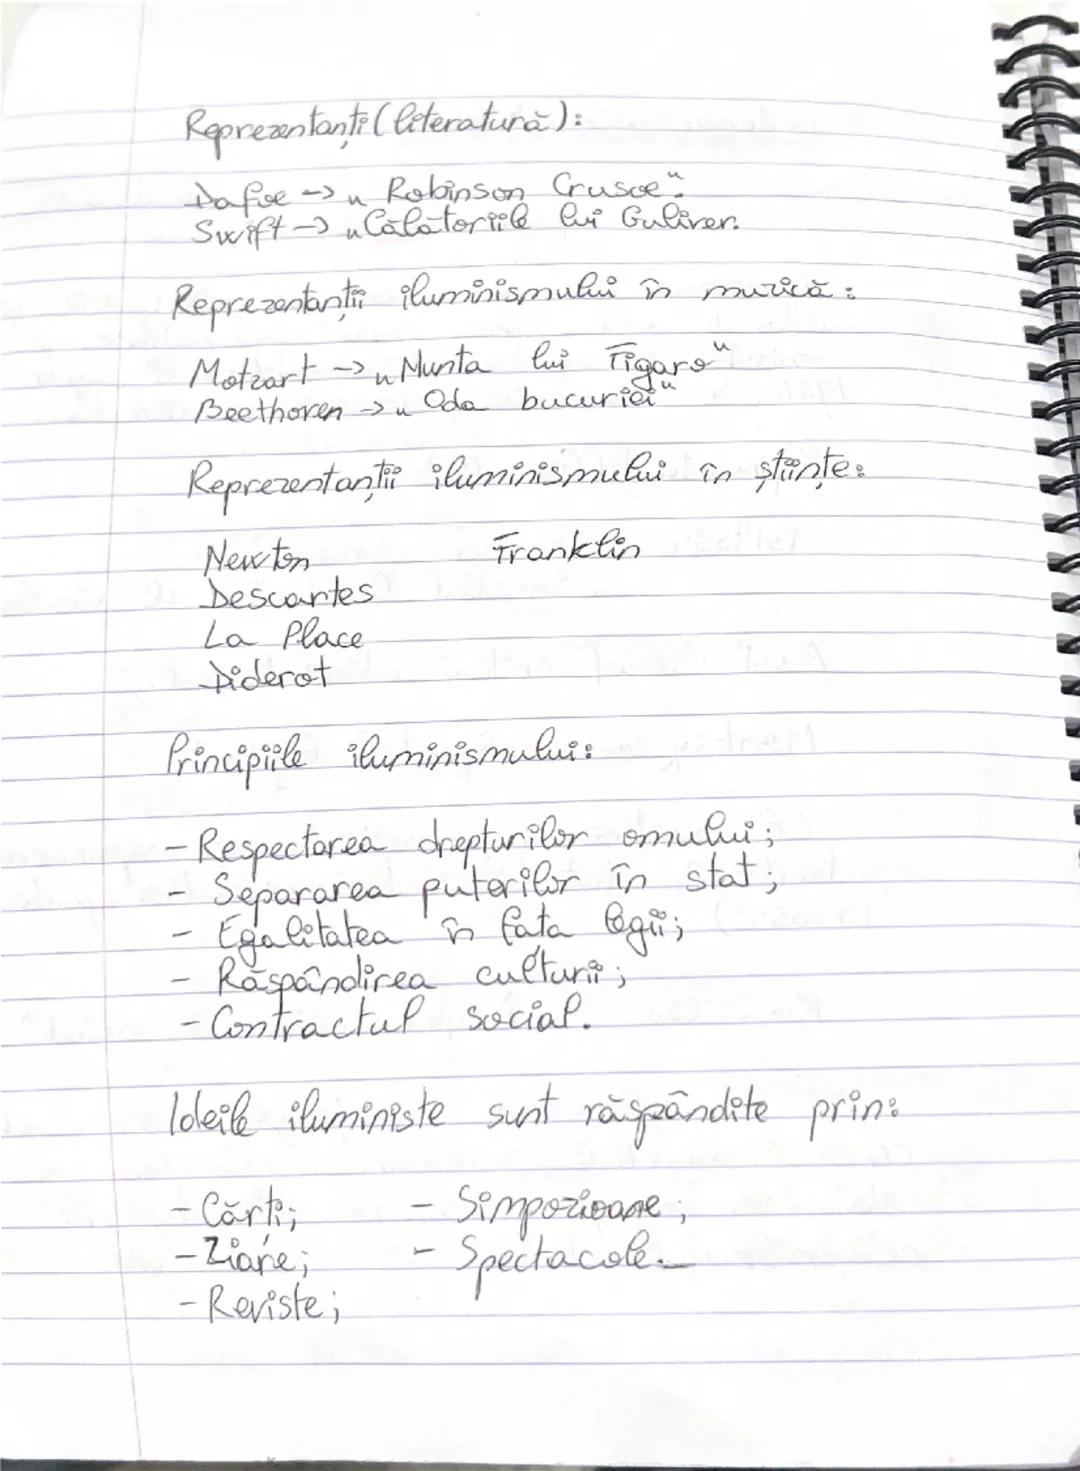 Reprezentanți (literatură):
Dafoe -> „Robinson Crusoe".
Swift -> „Călătoriile lui Guliver.
Reprezentanții iluminismului în muzică:
Motzart -> „Nunta lui Figaro"
Beethoven -> „Oda bucuriei"
Reprezentanții iluminismului în științe:
Newton Franklin
Descartes
La Place
Diderot
Principiile iluminismului:
- Respectarea drepturilor omului;
- Separarea puterilor în stat;
- Egalitatea în fața legii;
- Răspândirea culturii;
- Contractul social.
Ideile iluministe sunt răspândite prin:
- Cărți; - Simpozioane;
- Ziare; - Spectacole.
- Reviste;